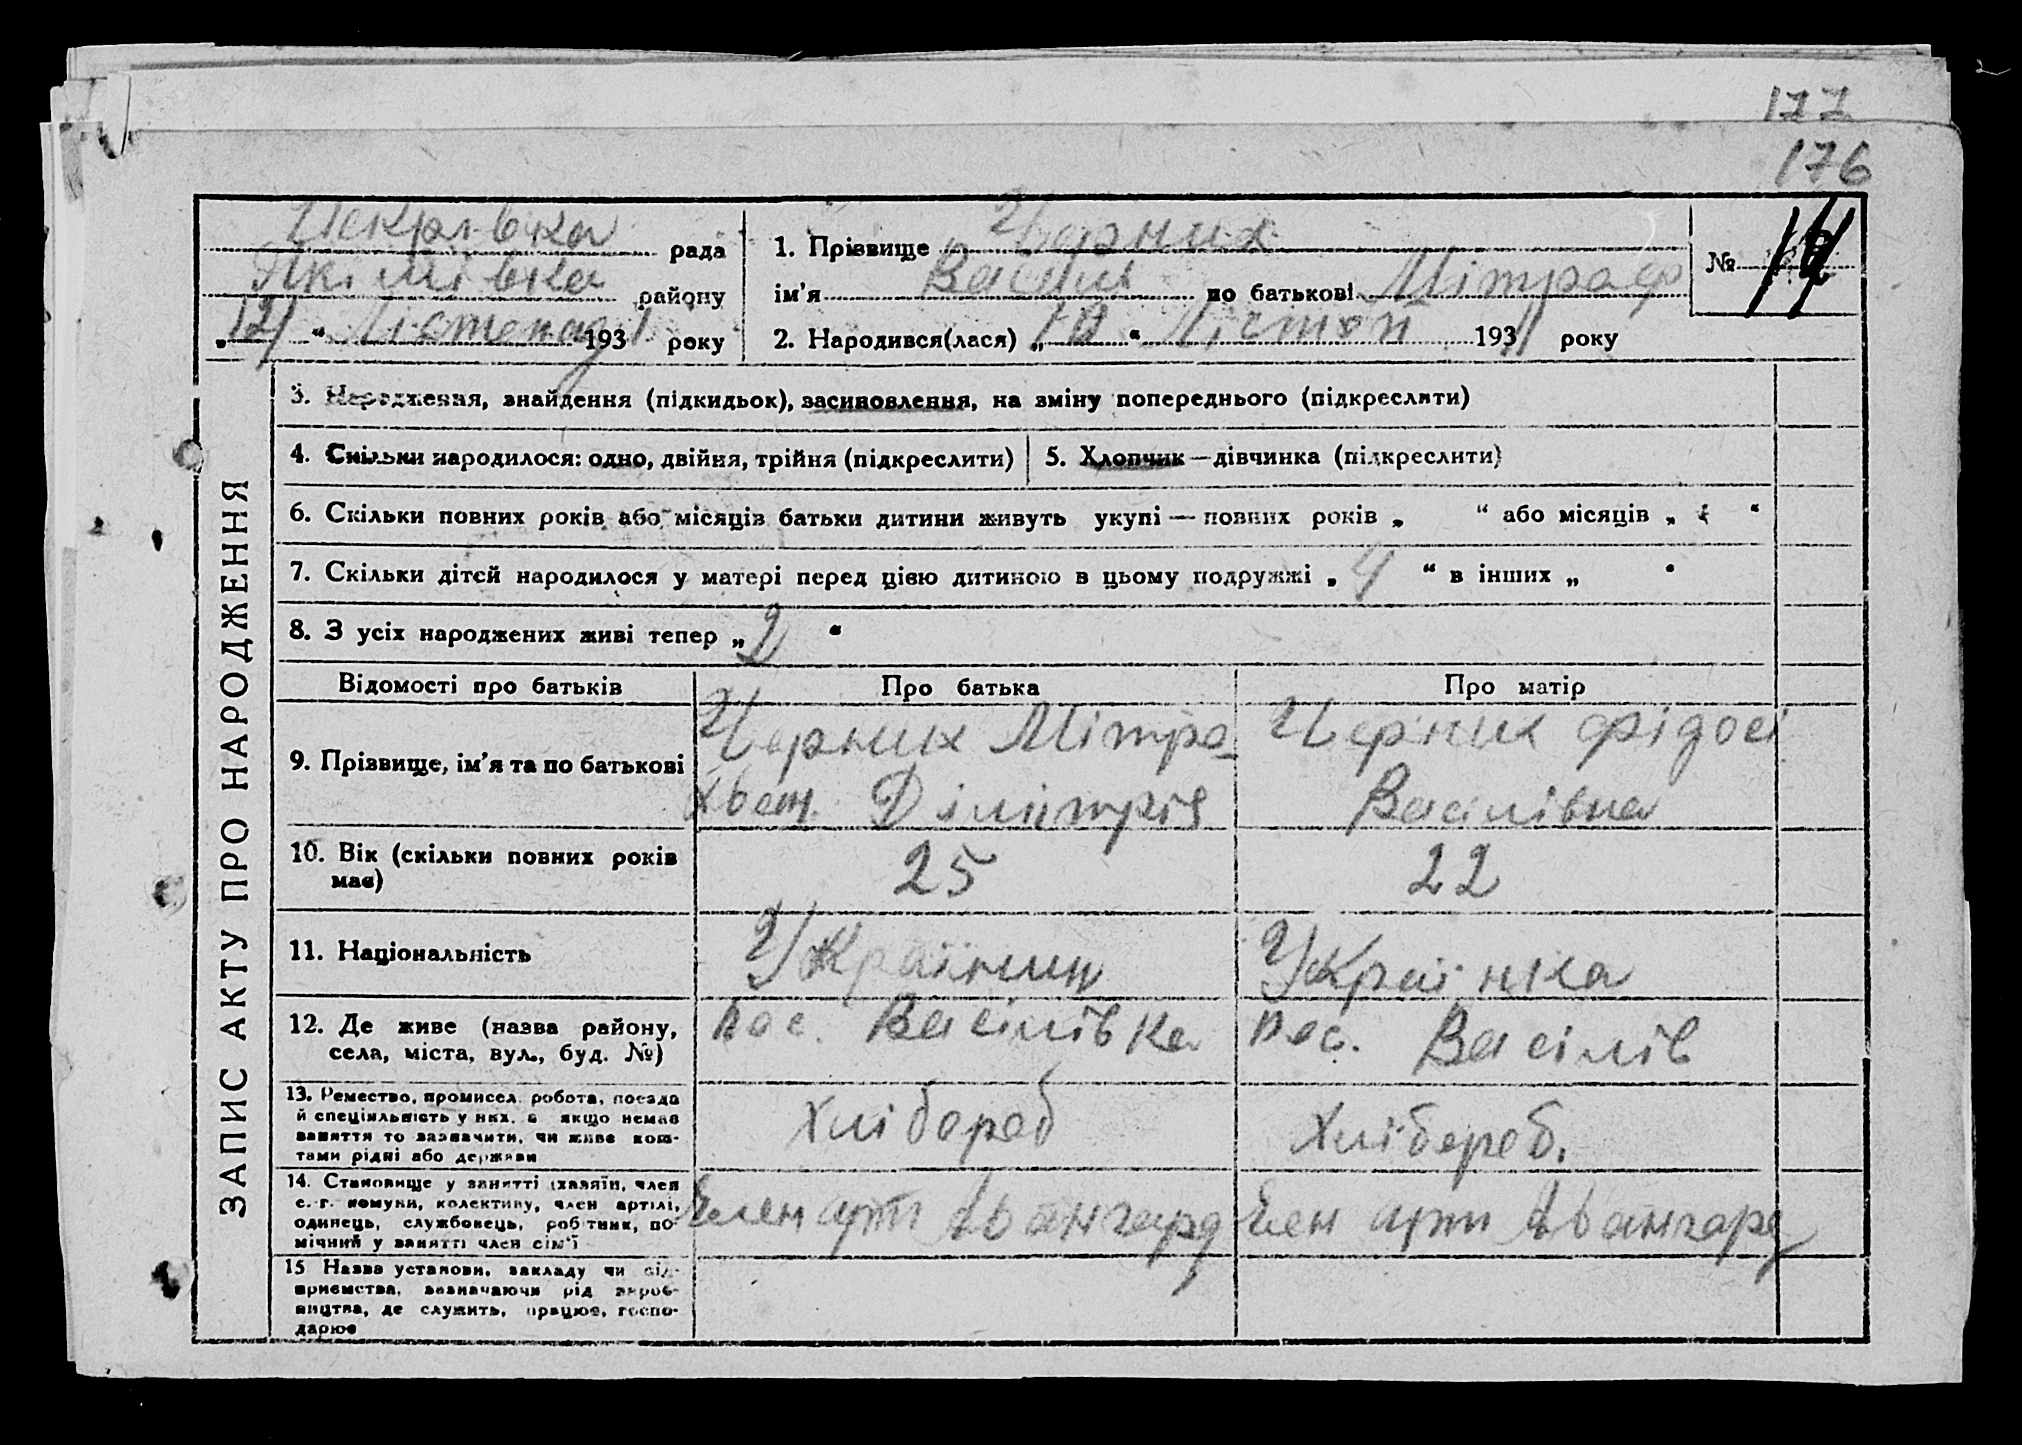 177
176
рада
Якімівка району
„12“ Лістопад 1931 року
1. Прізвище Черних
ім’я Васіль по батькові Мітроф
2. Народився(лася) „10“ Лістоп 1931 року
№
ЗАПИС АКТУ ПРО НАРОДЖЕННЯ
3. Народження, знайдення (підкидьок), засиновлення, на зміну попереднього (підкреслити)
4. Скільки народилося: одно, двійня, трійня (підкреслити)
5. Хлопчик — дівчинка (підкреслити)
6. Скільки повних років або місяців батьки дитини живуть укупі — повних років „ “ або місяців „ “
7. Скільки дітей народилося у матері перед цією дитиною в цьому подружжі „4“ в інших „ “
8. З усіх народжених живі тепер „2“
Відомості про батьків Про батька Про матір
9. Прізвище, ім’я та по батькові
Черних Мітро-
Черних Фідосі
Васілівна
10. Вік (скільки повних років
має)
25
22
11. Національність
Українин
Українка
12. Де живе (назва району,
села, міста, вул., буд. №)
пос. Васілівка
пос. Васілів
13. Ремество, промисел, робота, посада
й спеціяльність у них, а якщо немає
заняття то зазначити, чи живе кош-
тами рідні або держави
Хлібороб
Хлібороб.
14. Становище у занятті (хазяїн, член
с.-г. комуни, колективу, член артілі,
одинець, службовець, робітник, по-
мічний у занятті член сім’ї
Член арт Авангард
Член арти Авангард
15 Назва установи, закладу чи під-
приємства, зазначаючи рід вироб-
ництва, де служить, працює, госпо-
дарює